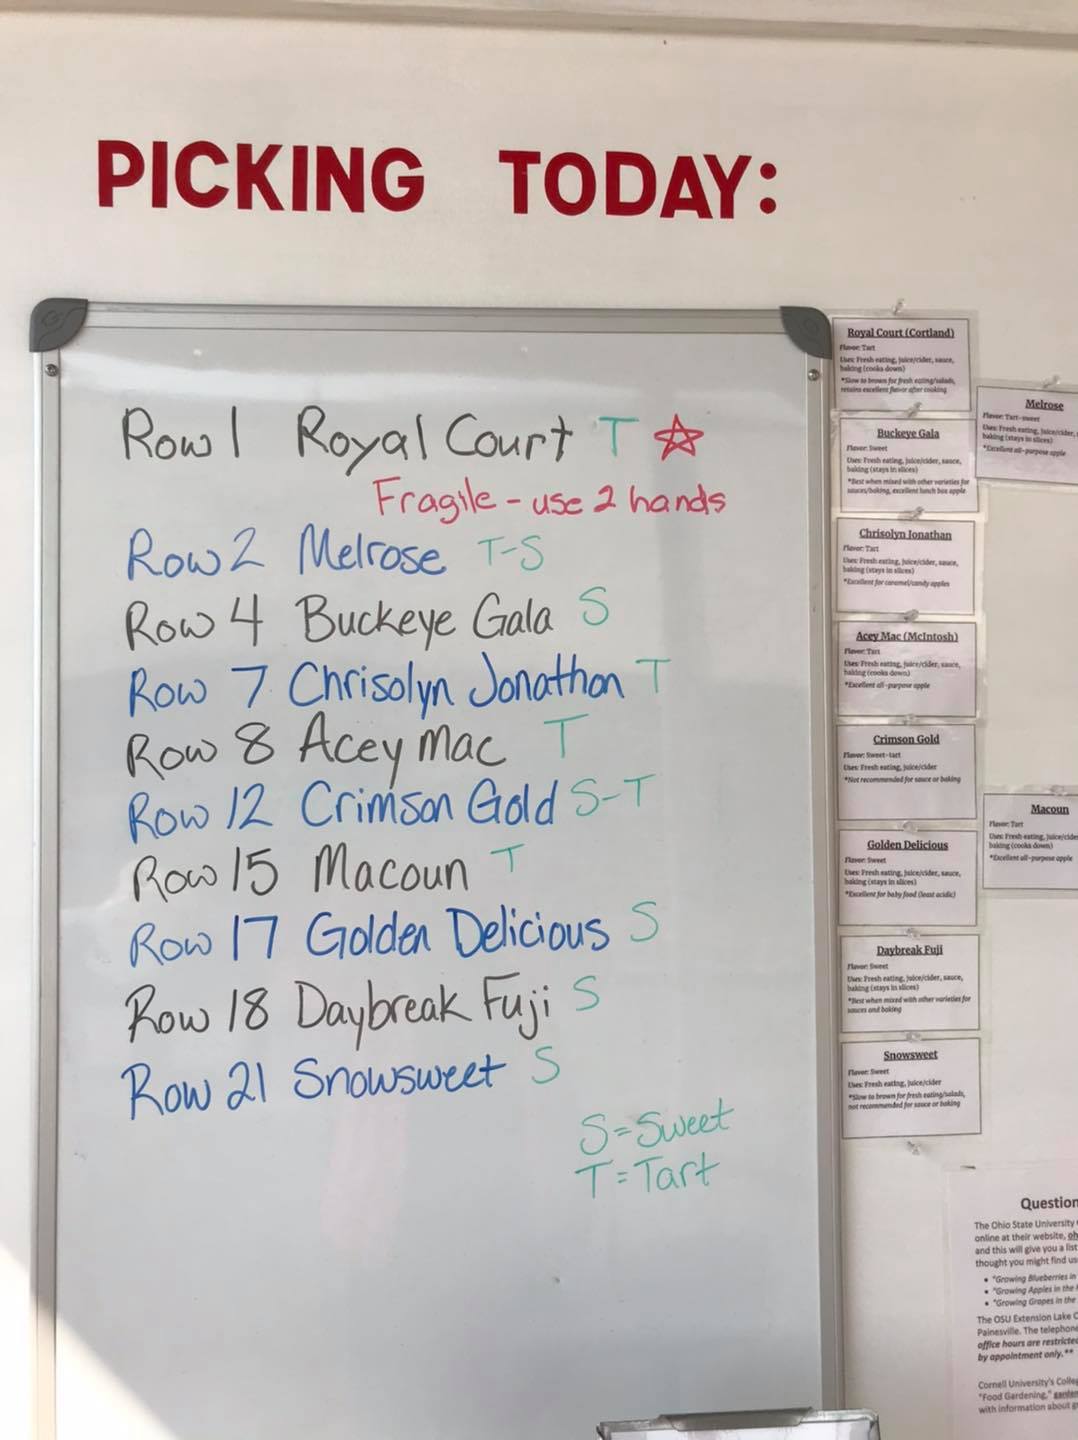 PICKING TODAY:
Row 1 Royal Court T
Fragile - use 2 hands
Row 2 Melrose T-S
Row 4 Buckeye Gala S
Row 7 Chrisolyn Jonathon T
Row 8 Acey Mac T
Row 12 Crimson Gold S-T
Row 15 Macoun T
Row 17 Golden Delicious S
Row 18 Daybreak Fuji S
Row 21 Snowsweet S
S=Sweet
T=Tart
Royal Court (Cortland)
Flavor: Tart
Uses: Fresh eating, juice/cider, sauce,
baking (cooks down)
*Slow to brown for fresh eating/salads,
retains excellent flavor after cooking
Melrose
Flavor: Tart-sweet
Uses: Fresh eating, juice/cider,
baking (stays in slices)
*Excellent all-purpose apple
Buckeye Gala
Flavor: Sweet
Uses: Fresh eating, juice/cider, sauce,
baking (stays in slices)
*Best when mixed with other varieties for
sauces/baking, excellent lunch box apple
Chrisolyn Jonathan
Flavor: Tart
Uses: Fresh eating, juice/cider, sauce,
baking (stays in slices)
*Excellent for caramel/candy apples
Acey Mac (McIntosh)
Flavor: Tart
Uses: Fresh eating, juice/cider, sauce,
baking (cooks down)
*Excellent all-purpose apple
Crimson Gold
Flavor: Sweet-tart
Uses: Fresh eating, juice/cider
*Not recommended for sauce or baking
Macoun
Flavor: Tart
Uses: Fresh eating, juice/cider
baking (cooks down)
*Excellent all-purpose apple
Golden Delicious
Flavor: Sweet
Uses: Fresh eating, juice/cider, sauce,
baking (stays in slices)
*Excellent for baby food (least acidic)
Daybreak Fuji
Flavor: Sweet
Uses: Fresh eating, juice/cider, sauce,
baking (stays in slices)
*Best when mixed with other varieties for
sauces and baking
Snowsweet
Flavor: Sweet
Uses: Fresh eating, juice/cider
*Slow to brown for fresh eating/salads,
not recommended for sauce or baking
Question
The Ohio State University
online at their website,
and this will give you a list
thought you might find
• "Growing Blueberries in
• "Growing Apples in the
• "Growing Grapes in the
The OSU Extension Lake
Painesville. The telephone
office hours are restricted
by appointment only.**
Cornell University's
"Food Gardening,"
with information about